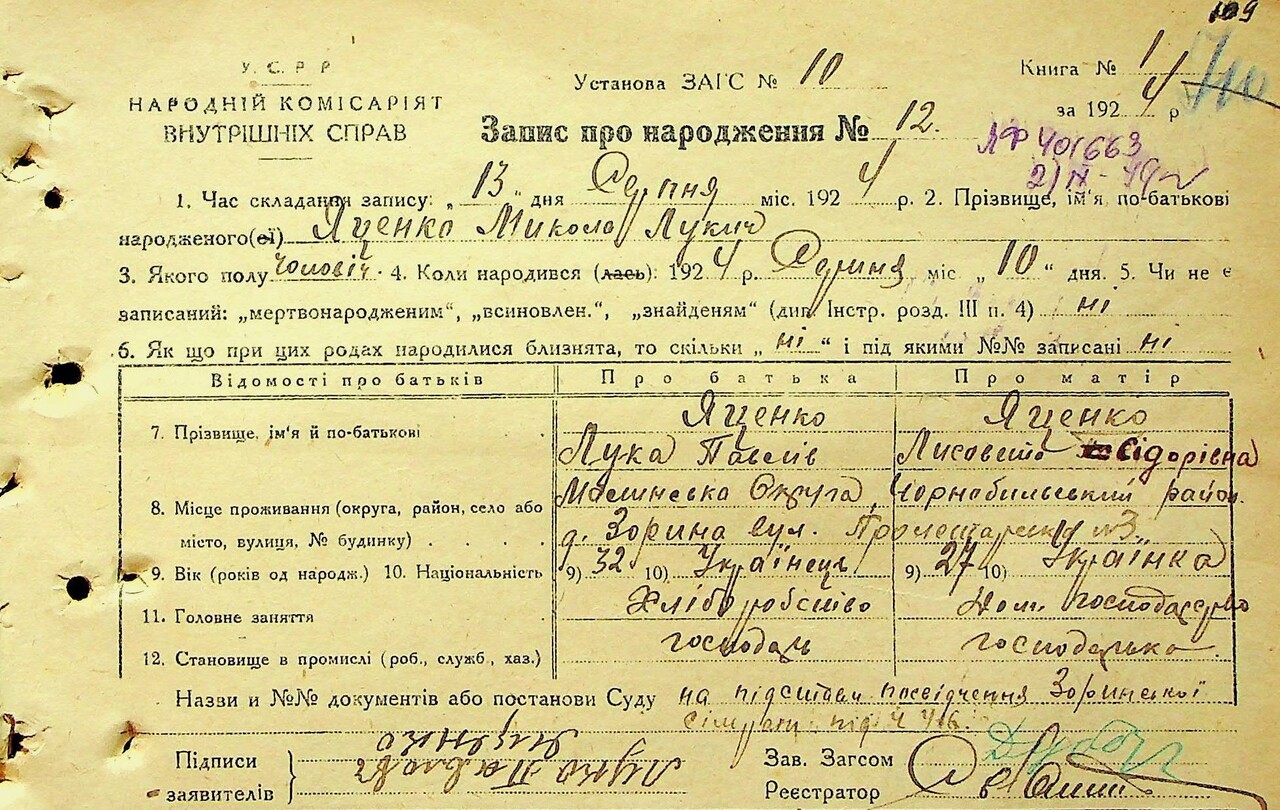 109
У.С.Р.Р
НАРОДНІЙ КОМІСАРІЯТ
ВНУТРІШНІХ СПРАВ
Установа ЗАГС № 10
Книга № 1
за 1924 р
Запис про народження № 12.
ЛФ 401663
1. Час складання запису: „13“ дня Серпня міс. 1924 р. 2. Прізвище, ім'я по-батькові
народженого(ої) Яценко Микола Лукич
3. Якого полу чоловіч. 4. Коли народився (лась): 1924 р. Серпня міс „10“ дня. 5. Чи не є
записаний: „мертвонародженим“, „всиновлен.“, „знайденям“ (див. Інстр. розд. III п. 4) ні
6. Як що при цих родах народилися близнята, то скільки „ні“ і під якими №№ записані ні
Відомості про батьків Про батька Про матір
7. Прізвище, ім'я й по-батькові Яценко Яценко
Лука Павлів Лисовета Сідорівна
8. Місце проживання (округа, район, село або Малинська Округа, Чорнобильський район.
місто, вулиця, № будинку) . . . . д. Зорина вул. Пролетарська №3.
9. Вік (років од народж.) 10. Національність 9) 32 10) Українець 9) 27 10) Українка
11. Головне заняття Хліборобство Дом. господарство
12. Становище в промислі (роб., служб., хаз.) господарь господарька
Назви и №№ документів або постанови Суду на підставі посвідчення Зоринської
під ч
Підписи
заявителів
Лука Павлов
Яценко
Зав. Загсом
Реєстратор